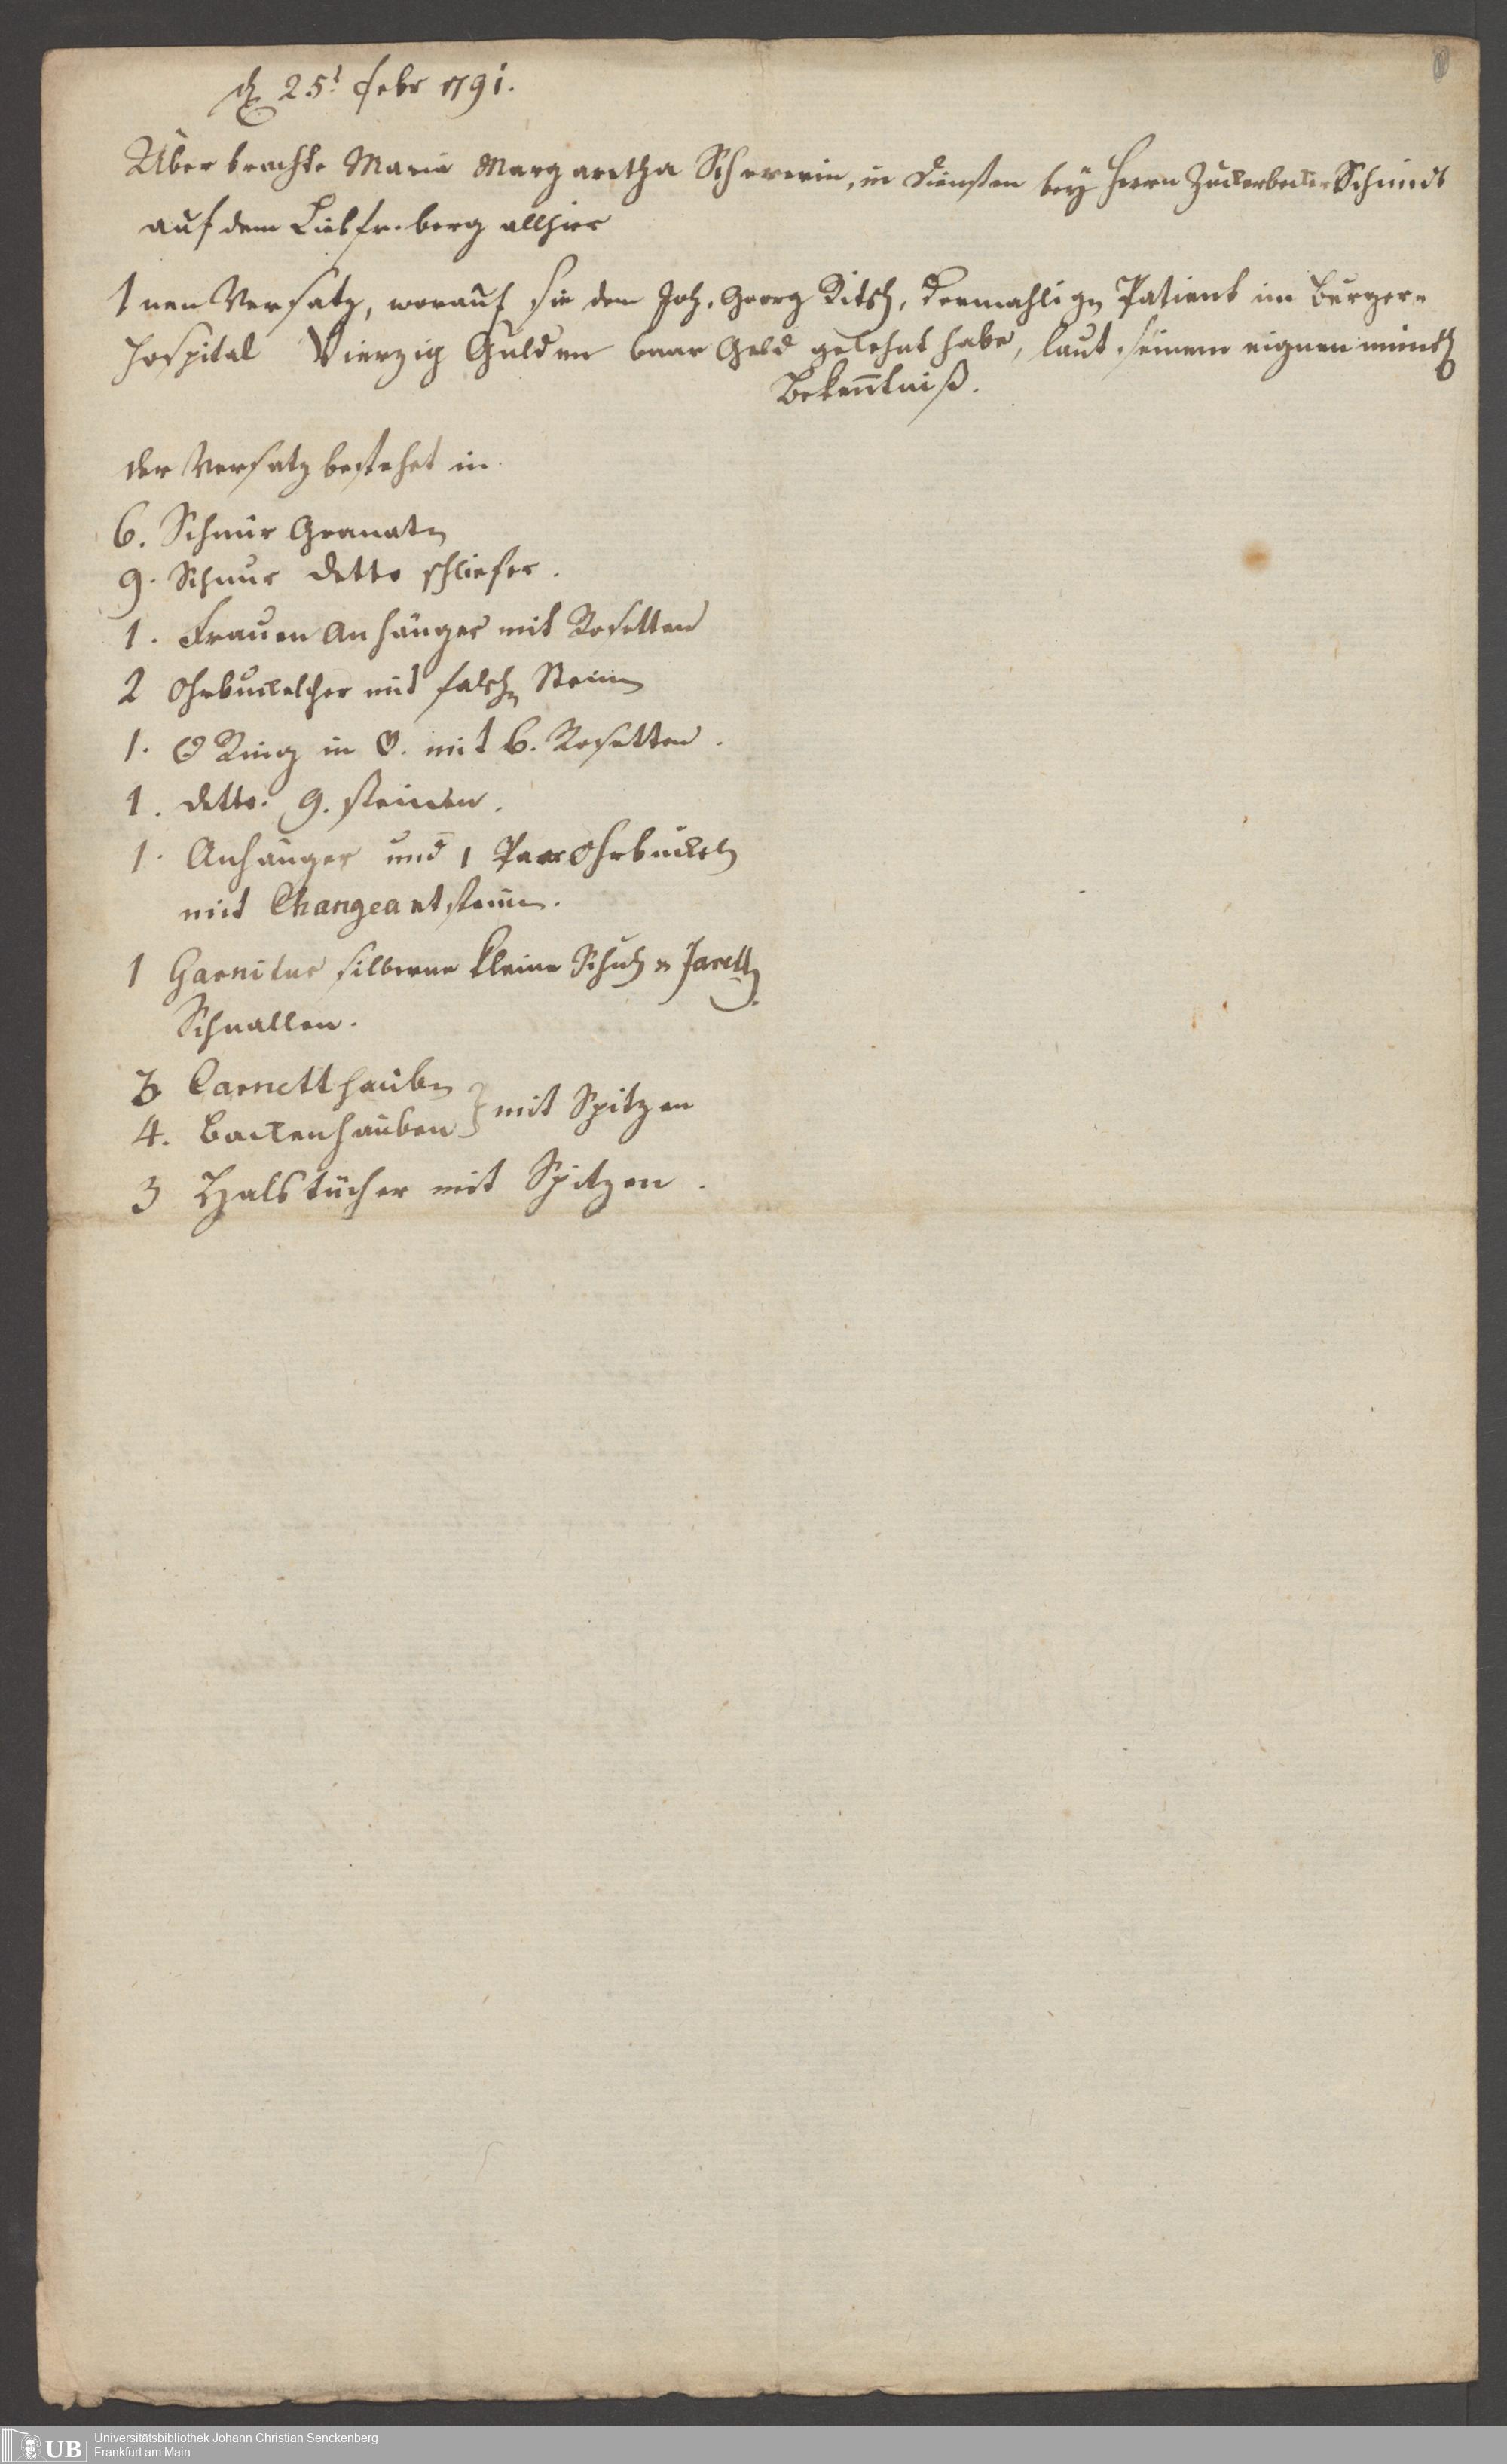 d. 25t. Febr 1791.
Überbrachte Maria Margaretha Schwerin, in Diensten bey Herrn Zuckerbecker Schmidt
auf dem Liebfr. berg allhier
1 nen Versatz, worauf sie dem Joh. Georg Ritsch, dermahlign Patient im Burger-
hospital Vierzig Gulden baar Geld gelehnt habe, laut seinem eignen mündl
Bekentniß.
der Versatz bestehet in
6. Schnur Granatn
9. Schnur detto schliefer.
1. Frauen Anhänger mit Rosetten
2 Ohrbuckelcher mit falschn Steinn
1. Ring in mit 6. Rosetten.
1. detto. 9. steinen.
1. Anhänger und 1 Paar Ohrbuckeln
mit Changeant steinn.
1 Garnitur silberne kleine Schuh
Schnallen.
3 Carnetthaubn
4. Backenhauben } mit Spitzen
3 Halstücher mit Spitzen.
UB
Universitätsbibliothek Johann Christian Senckenberg
Frankfurt am Main